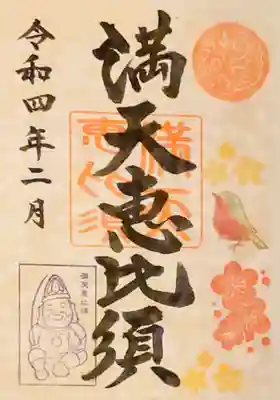 満天恵比須
満天
恵比須
満天恵比須
令和四年二月